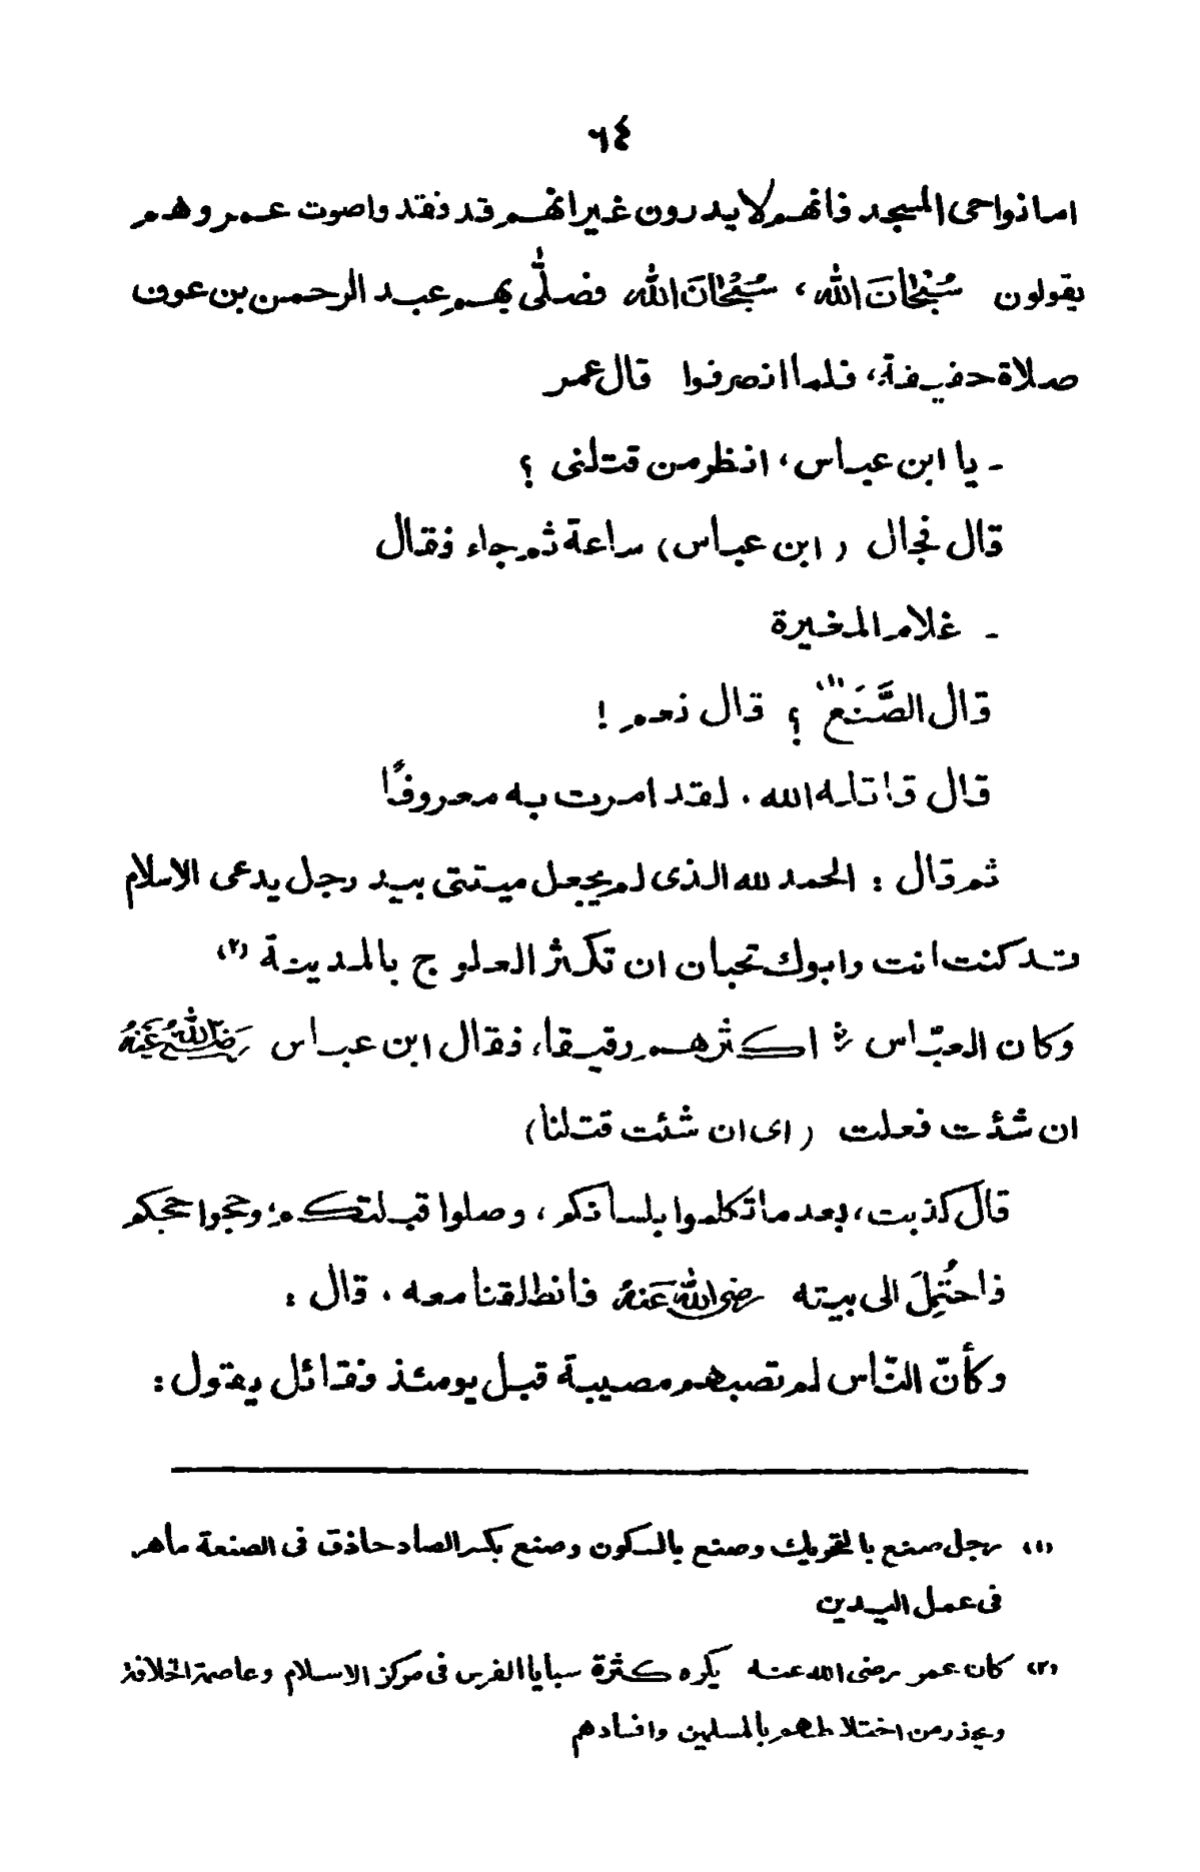 ٦٤
اما نواحى المسجد فانهم لا يدرون غير انهم قد فقدوا صوت عمر وهم
يقولون سُبْحَانَ الله، سُبْحَانَ الله فصلّٰى بهم عبد الرحمن بن عوف
صلاة خفيفة، فلما انصرفوا قال عمر
- يا ابن عباس، انظر من قتلنى ؟
قال فجال (ابن عباس) ساعة ثم جاء فقال
- غلام المغيرة
قال الصَّنَعُ (١) ؟ قال نعم !
قال قاتله الله . لقد امرت به معروفًا
ثم قال : الحمد لله الذى لم يجعل ميتتى بيد رجل يدعى الاسلام
قد كنت انت وابوك تحبان ان تكثر العلوج بالمدينة (٢)
وكان العبّاس رض اكثرهم رقيقا، فقال ابن عباس رَضِىَ اللهُ عَنْهُ
ان شئت فعلت (اى ان شئت قتلنا)
قال كذبت، بعد ما تكلموا بلسانكم، وصلوا قبلتكم؛ وحجوا حجكم
فاحتُمِلَ الى بيته رضى الله عَنهُ فانطلقنا معه . قال :
وكأنّ النّاس لم تصبهم مصيبة قبل يومئذ فقائل يقول:
(١) رجل صنع بالتحريك وصنع بالسكون وصنع بكسر الصاد حاذق فى الصنعة ماهر
فى عمل اليدين
(٢) كان عمر رضى الله عنه يكره كثرة سبايا الفرس فى مركز الاسلام وعاصمة الخلافة
ويحذر من اختلاطهم بالمسلمين وافسادهم